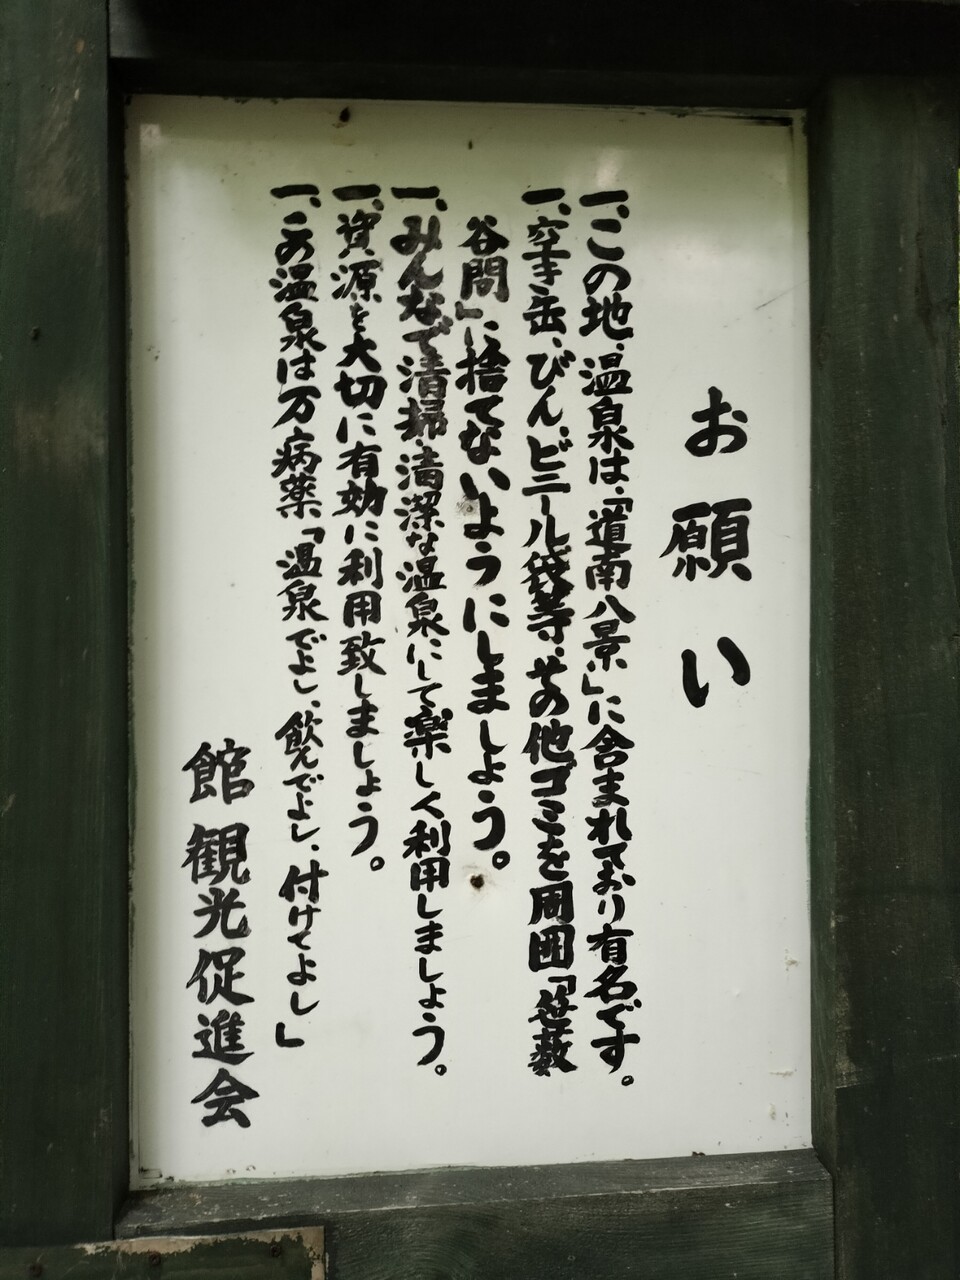 お願い
一、この地、温泉は、「道南八景」に含まれており有名です。
一、空き缶、びん、ビニール袋等、その他ゴミを周囲「笹薮
谷間」に捨てないようにしましょう。
一、みんなで清掃、清潔な温泉にして楽しく利用しましょう。
一、資源を大切に有効に利用致しましょう。
一、この温泉は万病薬「温泉でよし、飲んでよし、付けてよし」
館観光促進会